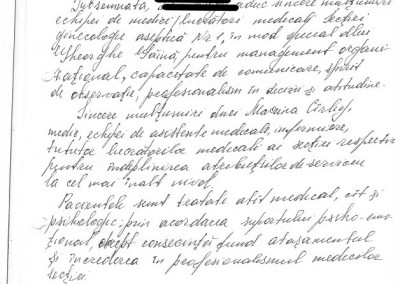 Subsemnata, aduc sincere mulțumiri
echipei de medici/lucrători medicali secției
ginecologie aseptică Nr 1, în mod special dlui
Gheorghe Găină, pentru management organi-
zațional, capacitate de comunicare, spirit
de observație, profesionalism în decizii și atitudine.
Sincere mulțumiri dnei Marina Cîrlig,
medic, echipei de asistente medicale, infermiere,
tuturor lucrătorilor medicali ai secției respective
pentru îndeplinirea atribuțiilor de serviciu
la cel mai înalt nivel.
Pacientele sunt tratate atît medical, cît și
psihologic, prin acordarea suportului psiho-emo-
țional, drept consecință fiind atașamentul
și încrederea în profesionalismul medicilor
secției